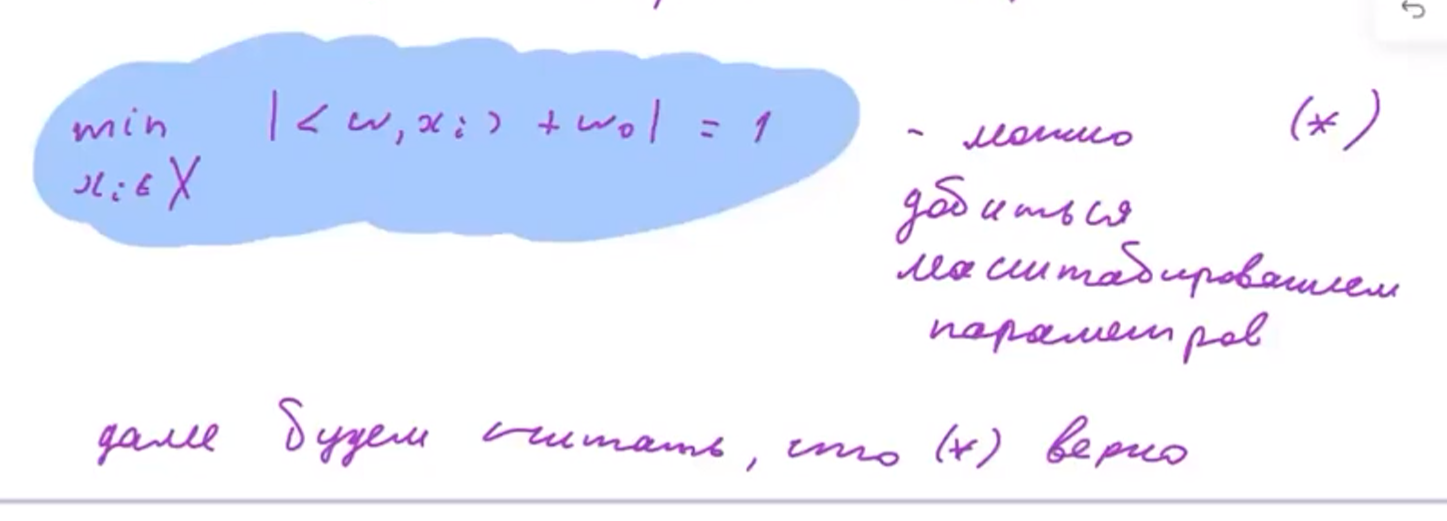 min |< w, xᵢ > + w₀| = 1 - можно (*)
xᵢ ∈ X
добиться
масштабированием
параметров
далее будем считать, что (*) верно